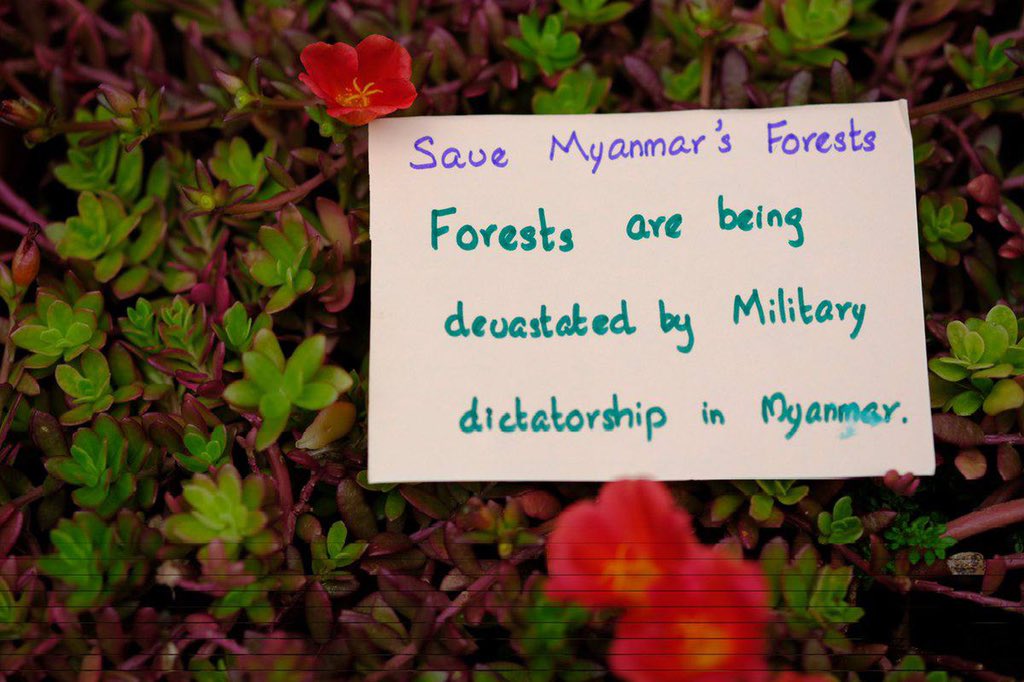 Save Myanmar's Forests
Forests are being
devastated by Military
dictatorship in Myanmar.